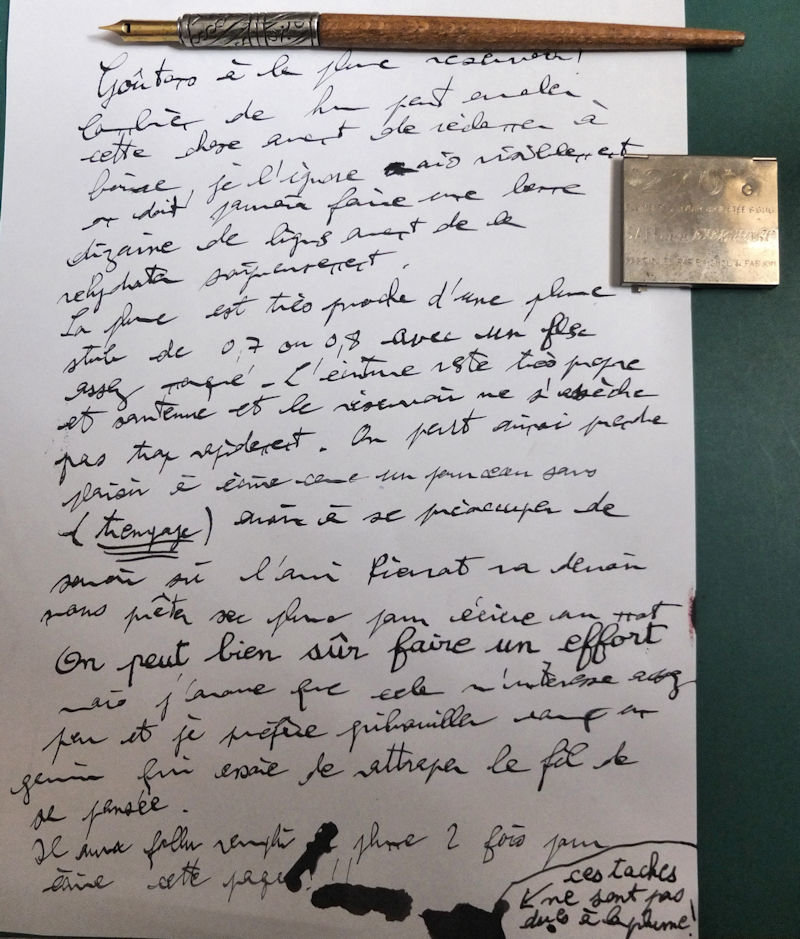 Goûtons à la plume réservoir!
Combien de                peut avaler
cette chose avant de réclamer à
boire, je l'ignore mais visiblement
on doit jamais faire une bonne
dizaine de lignes avant de la
réhydrater soigneusement.
La plume est très proche d'une plume
stub de 0,7 ou 0,8 avec un flex
assez marqué. L'écriture reste très propre
et soutenue et le réservoir ne s'assèche
pas trop rapidement. On peut ainsi prendre
plaisir à écrire comme un pourceau sans
(trempage) avoir à se préoccuper de
savoir si l'ami Pierrot va devoir
nous prêter sa plume pour écrire un mot
On peut bien sûr faire un effort
mais j'avoue que cela m'intéresse assez
peu et je préfère gribouiller comme un
gamin qui essaie de rattraper le fil de
sa pensée.
Il aura fallu remplir la plume 2 fois pour
écrire cette page! !!
ces taches
ne sont pas
dues à la plume!